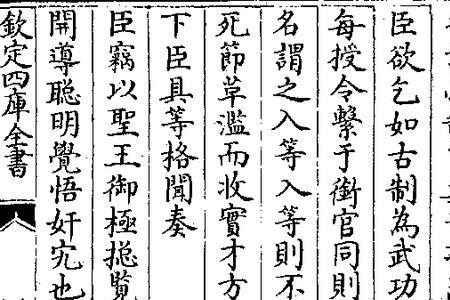 臣欲乞如古制為武功
每授令繫于銜官同則
名謂之入等入等則不
死節草濫而收實才方
下臣具等格聞奏
臣竊以聖王御極揔覧
開導聰明覺悟奸宄也
欽定四庫全書